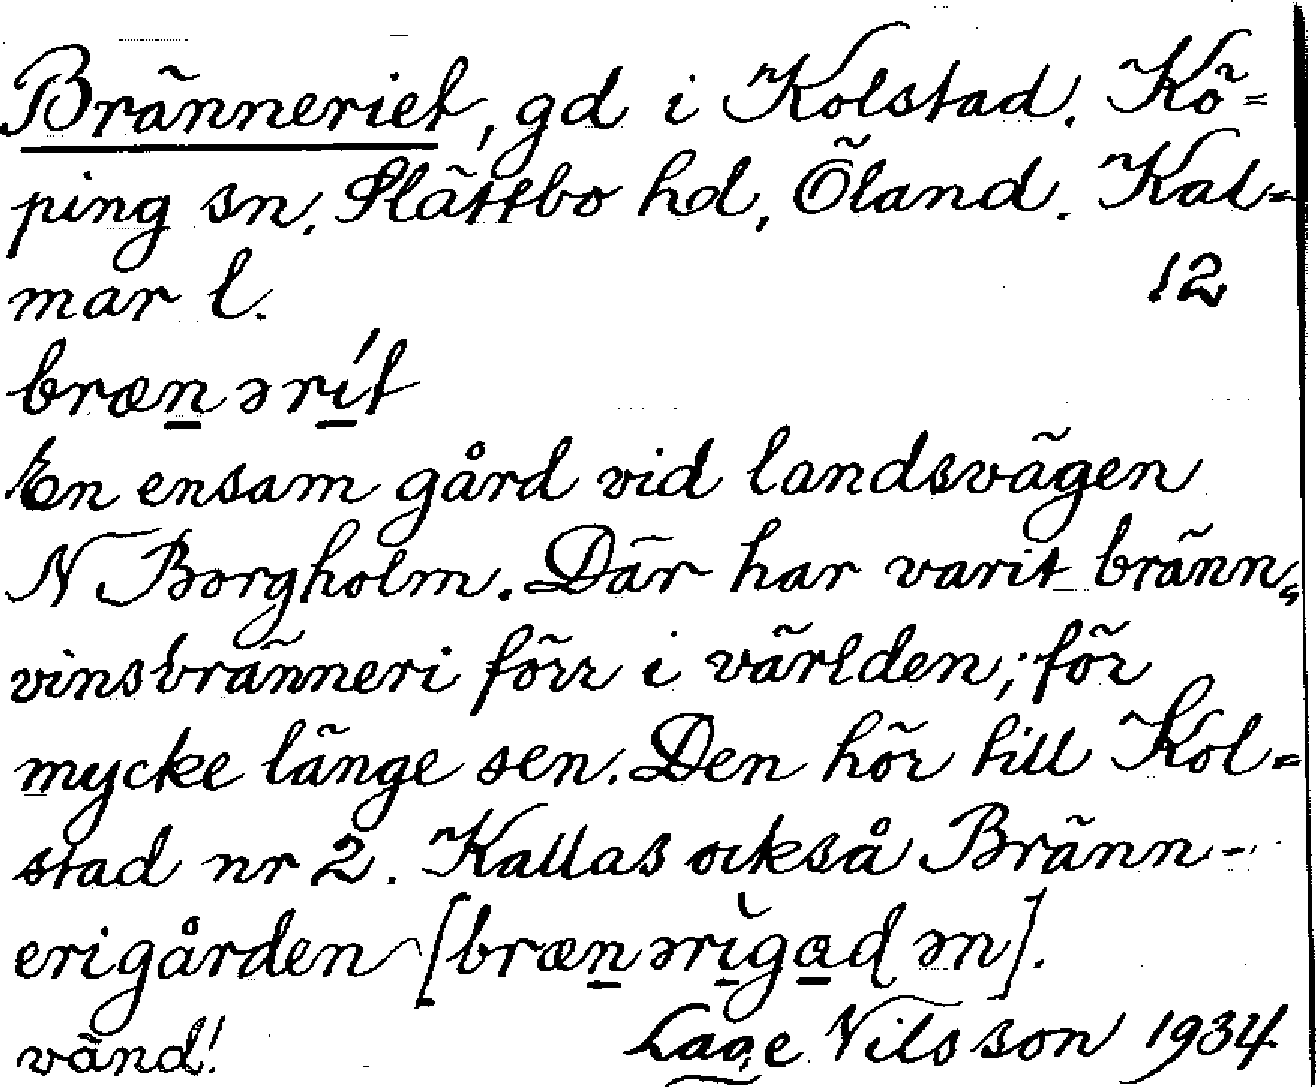 Bränneriet, gd i Kolstad. Kö=
ping sn. Slättbo hd, Öland. Kal=
mar l. 12
bræn̲ərí̲t
En ensam gård vid landsvägen
N Borgholm. Där har varit bränn=
vinsbränneri förr i världen; för
mycke länge sen. Den hör till Kol=
stad nr 2. Kallas också Bränn-
erigården [bræn̲ərì̲ga̲ɖən].
vänd! Lage Nilsson 1934